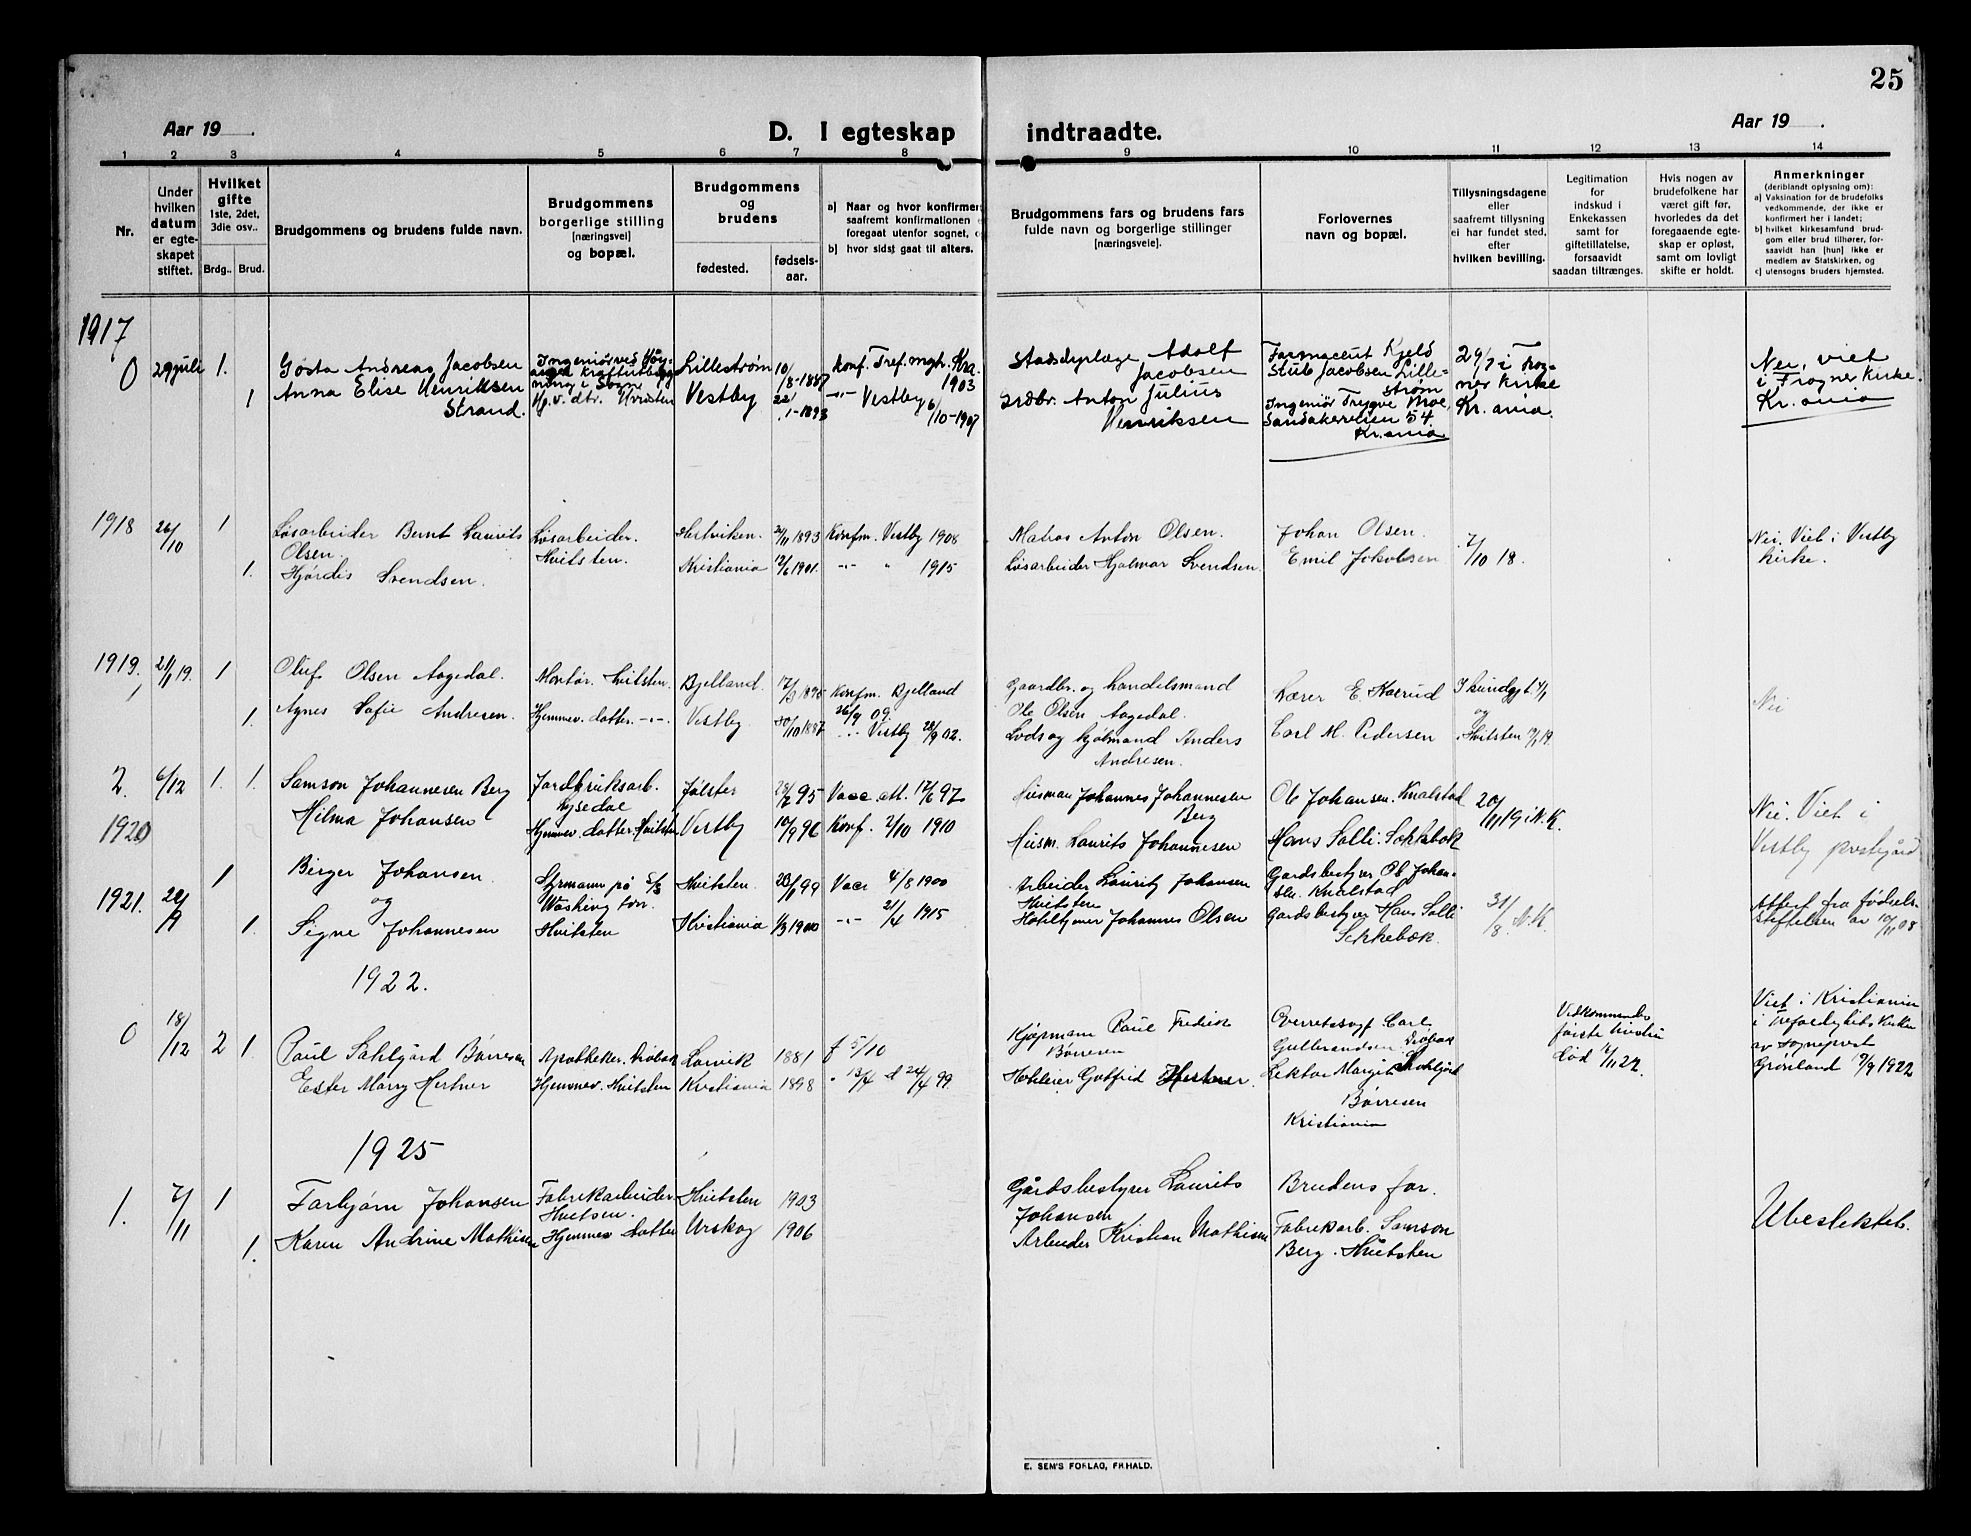 25
Aar 19 .
D. I egteskap indtraadte.
Aar 19 .
1 2 3 4 5 6 7 8 9 10 11 12 13 14
Nr.
Under
hvilken
datum
er egte-
skapet
stiftet.
Hvilket
gifte
1ste, 2det,
3die osv..
Brdg.. Brud.
Brudgommens og brudens fulde navn.
Brudgommens
borgerlige stilling
[næringsvei]
og bopæl.
Brudgommens
og
brudens
fødested.
fødsels-
aar.
a) Naar og hvor konfirmer
saafremt konfirmationen
foregaat utenfor sognet,
b) hvor sidst gaat til alters.
Brudgommens fars og brudens fars
fulde navn og borgerlige stillinger
[næringsvei].
Forlovernes
navn og bopæl.
Tillysningsdagene
eller
saafremt tillysning
ei har fundet sted,
efter
hvilken bevilling.
Legitimation
for
indskud i
Enkekassen
samt for
giftetillatelse,
forsaavidt
saadan tiltrænges.
Hvis nogen av
brudefolkene har
været gift før,
hvorledes da det
foregaaende egte-
skap er opløst,
samt om lovligt
skifte er holdt.
Anmerkninger
(deriblandt oplysning om):
a) Vaksination for de brudefolks
vedkommende, der ikke er
konfirmert her i landet;
b) hvilket kirkesamfund brud-
gom eller brud tilhører, for-
saavidt han [hun] ikke er
medlem av Statskirken, og
c) utensogns bruders hjemsted.
1917
0 29 juli 1.
Gösta Andreas Jacobsen
Anna Elise Henriksen
Strand.
1
Ingeniør ved
Hj.v. dtr. Hvitsten
Lillestrøm 10/8-1887
Vestby 22/1-1893
Konf. Tref. mgh. Kra.
1903
-"- Vestby 6/10-1907
Adolf
Jacobsen
Anton Julius
Henriksen
Farmaceut Kjeld
Stub Jacobsen Lille-
strøm
Ingeniør Trygve Moe,
Sandakerveien 54.
Kr.ania
29/7 i Frog-
ner Kirke
Kr.ania.
Nei, viet
i Frogner Kirke.
Kr.ania
1918 26/10 1
Løsarbeider Bernt Laurits
Olsen.
1. Hjørdis Svendsen.
Løsarbeider.
Hvitsten.
1893
Kristiania 12/6 1901.
Konfm. Vestby 1908
-"- " 1915
Matros Anton Olsen.
Løsarbeider Hjalmar Svendsen
Johan Olsen.
Emil Jakobsen
7/10 18.
Nei. Viet i Vestby
kirke.
1919. 21/1 19. 1
Oluf Olsen Aagedal.
1. Agnes Sofie Andresen.
Montør. Hvitsten.
Hjemmev. datter. -"-
Bjelland.
Vestby. 30/10 1887
Konfm. Bjelland
26/9 09.
-"- Vestby 28/9 02.
Gaardbr. og handelsmand
Ole Olsen Aagedal.
Lods og Anders
Andresen.
Lærer E. Kaerud
Carl M. Pedersen
og
Hvitsten
Nei
2. 6/12 1. 1.
Samson Johannesen Berg
Hilma Johansen
Jordbruksarb.
Hjemmev. datter. Hvitsten
Jølster 95
Vestby 10/9 96
Vacc. att. 17/6 97
Konf. 2/10 1910
Husman Johannes Johannesen
Berg
Husm. Laurits Johannesen
Ole Johansen. Knalstad
Hans Solli. Sokkebæk
20/11 19 i N.K.
Nei. Viet i
Vestby prestegård
1920
1921. 1
Birger Johansen.
og
1. Signe Johannesen
Styrmann på S/S
Washington.
Hvitsten
Hvitsten. 99
Kristiania 1/3 1900
Vacc 4/8 1900
-"- 1915
Arbeider Lauritz Johansen
Hvitsten
Johannes Olsen
Gardsbestyrer Ole Johan-
sen. Knalstad
Gardsbestyrer Hans Solli
Sokkebæk.
31/8. N.K.
Attest fra fødsels-
stiftelsen av 10/11 08
1922.
0 18/12 2 1.
Paul Sahlgård Børresen
Ester Mary Hertner
Apotheker. Drøbak
Hjemmev. Hvitsten
Larvik 1881
Kristiania 1898
f 5/10
" 13/4 d 24/4 99.
Kjøpmann Paul Fredrik
Børresen
Hoteleier Gotfrid Hertner.
Overretssagf. Carl
Gulbrandsen. Drøbak
Lektor Margit Sahlgård
Børresen
Kristiania
Vedkommendes
første hustru
død
Viet i Kristiania
i Trefoldighets kirke
av sogneprest
Grønland 1922
1925
1. 7/11 1
Torbjørn Johansen
1. Karen Andrine Mathisen
Fabrikarbeider.
Hvitsten.
Hjemmev. datter
Hvitsten 1903
Urskog 1906
Gårdsbestyrer Laurits
Johansen
Arbeider Kristian Mathisen
Brudens far.
Fabrikarb. Samson
Berg. Hvitsten
Ubeslektet.
E. SEM'S FORLAG, FR.HALD.